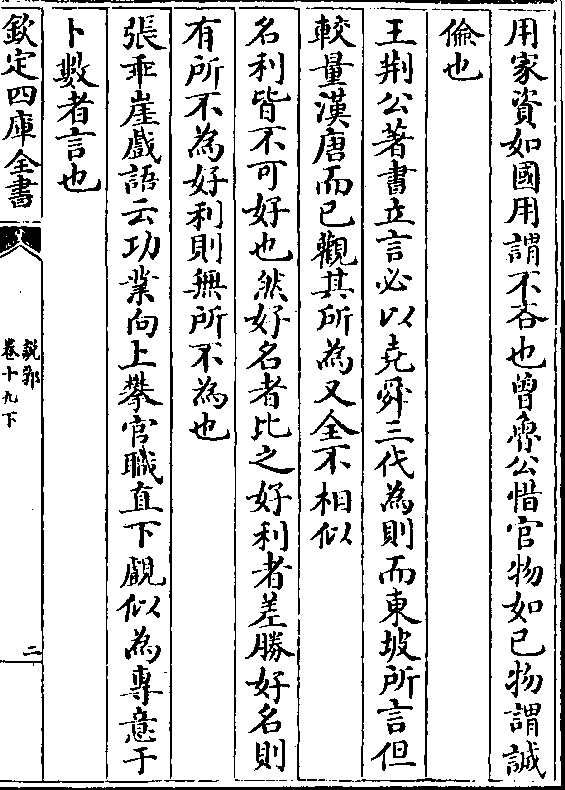 用家資如國用謂不吝也曾魯公惜官物如已物謂誠
倫也
王荆公著書立言必以堯舜三代為則而東坡所言但
較量漢唐而已觀其所為又全不相似
名利皆不可好也然好名者比之好利者差勝好名則
有所不為好利則無所不為也
張乖崖戲語云功業向上攀官職直下覷似為專意于
卜數者言也
欽定四庫全書
說郛
卷十九下
二